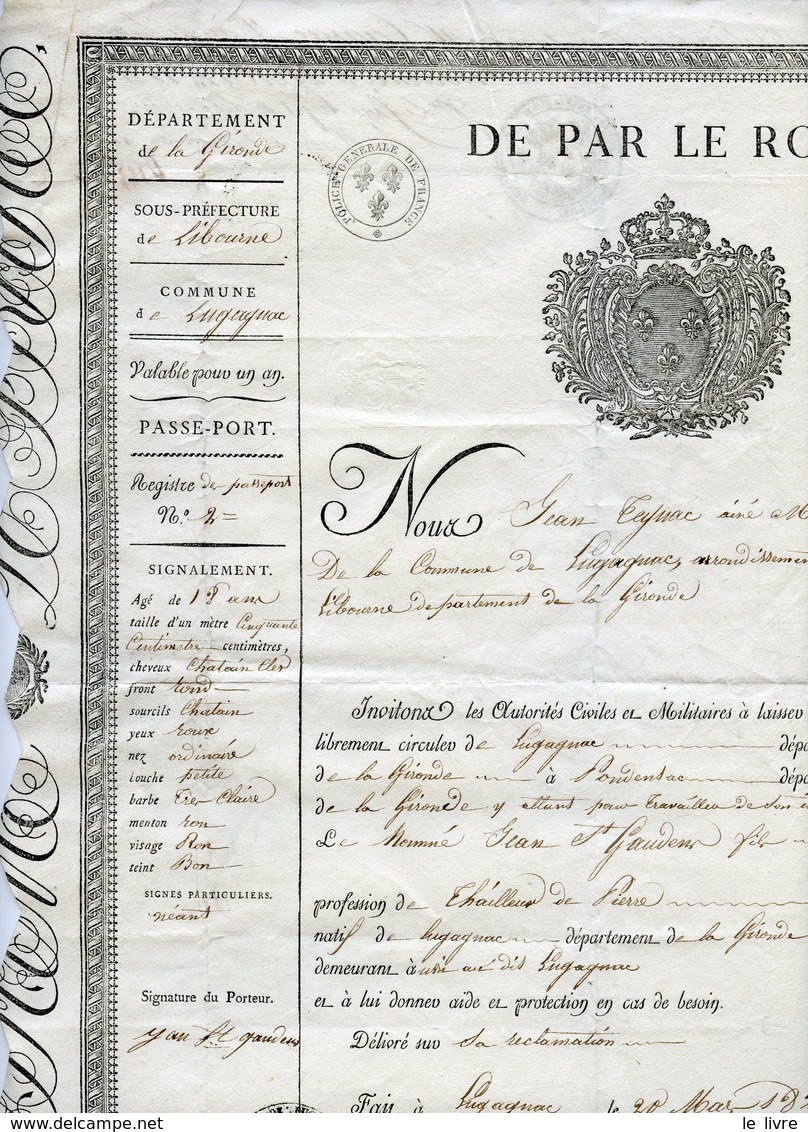 DÉPARTEMENT
de la Gironde
SOUS-PRÉFECTURE
de Libourne
COMMUNE
de Lugagnac
Valable pour un an.
PASSE-PORT.
Registre de passeport
N.º 2 =
SIGNALEMENT.
Agé de 18 ans
taille d'un mètre Cinquante
Centimetre centimètres,
cheveux Chatain Cler
front rond
sourcils Chatain
yeux roux
nez ordinaire
bouche petite
barbe Tres Claire
menton ron
visage Ron
teint Bon
SIGNES PARTICULIERS.
néant
Signature du Porteur.
yan St gaudens
POLICE GENERALE DE FRANCE
DE PAR LE RO
Nous Jean Teynac ainé M
De la Commune de Lugagnac, arrondissemen
Libourne departement de la Gironde
Invitons les Autorités Civiles et Militaires à laisser
librement circuler de Lugagnac dépa
de la Gironde à Pondensac dépa
de la Gironde y allant pour travailler de son
Le Nommé Jean St Gaudens fils
profession de Thailleur de Pierre
natif de lugagnac département de la Gironde
demeurant à au dit Lugagnac
et à lui donner aide et protection en cas de besoin.
Délivré sur sa reclamation
Fait à Lugagnac le 20 Mars 18
le livre